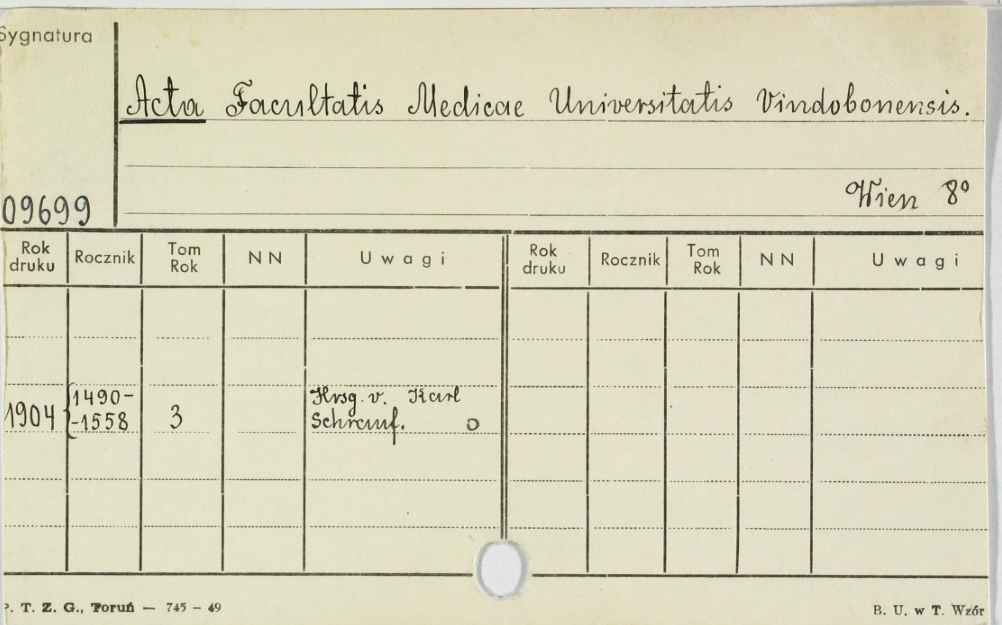 Sygnatura
Acta Facultatis Medicae Universitatis Vindobonensis.
Wien 8°
09699
Rok druku Rocznik Tom Rok NN Uwagi Rok druku Rocznik Tom Rok NN Uwagi
1904 {1490-
-1558 3 Hrsg. v. Karl
Schrauf. o
P. T. Z. G., Toruń — 745 - 49 B. U. w T. Wzór